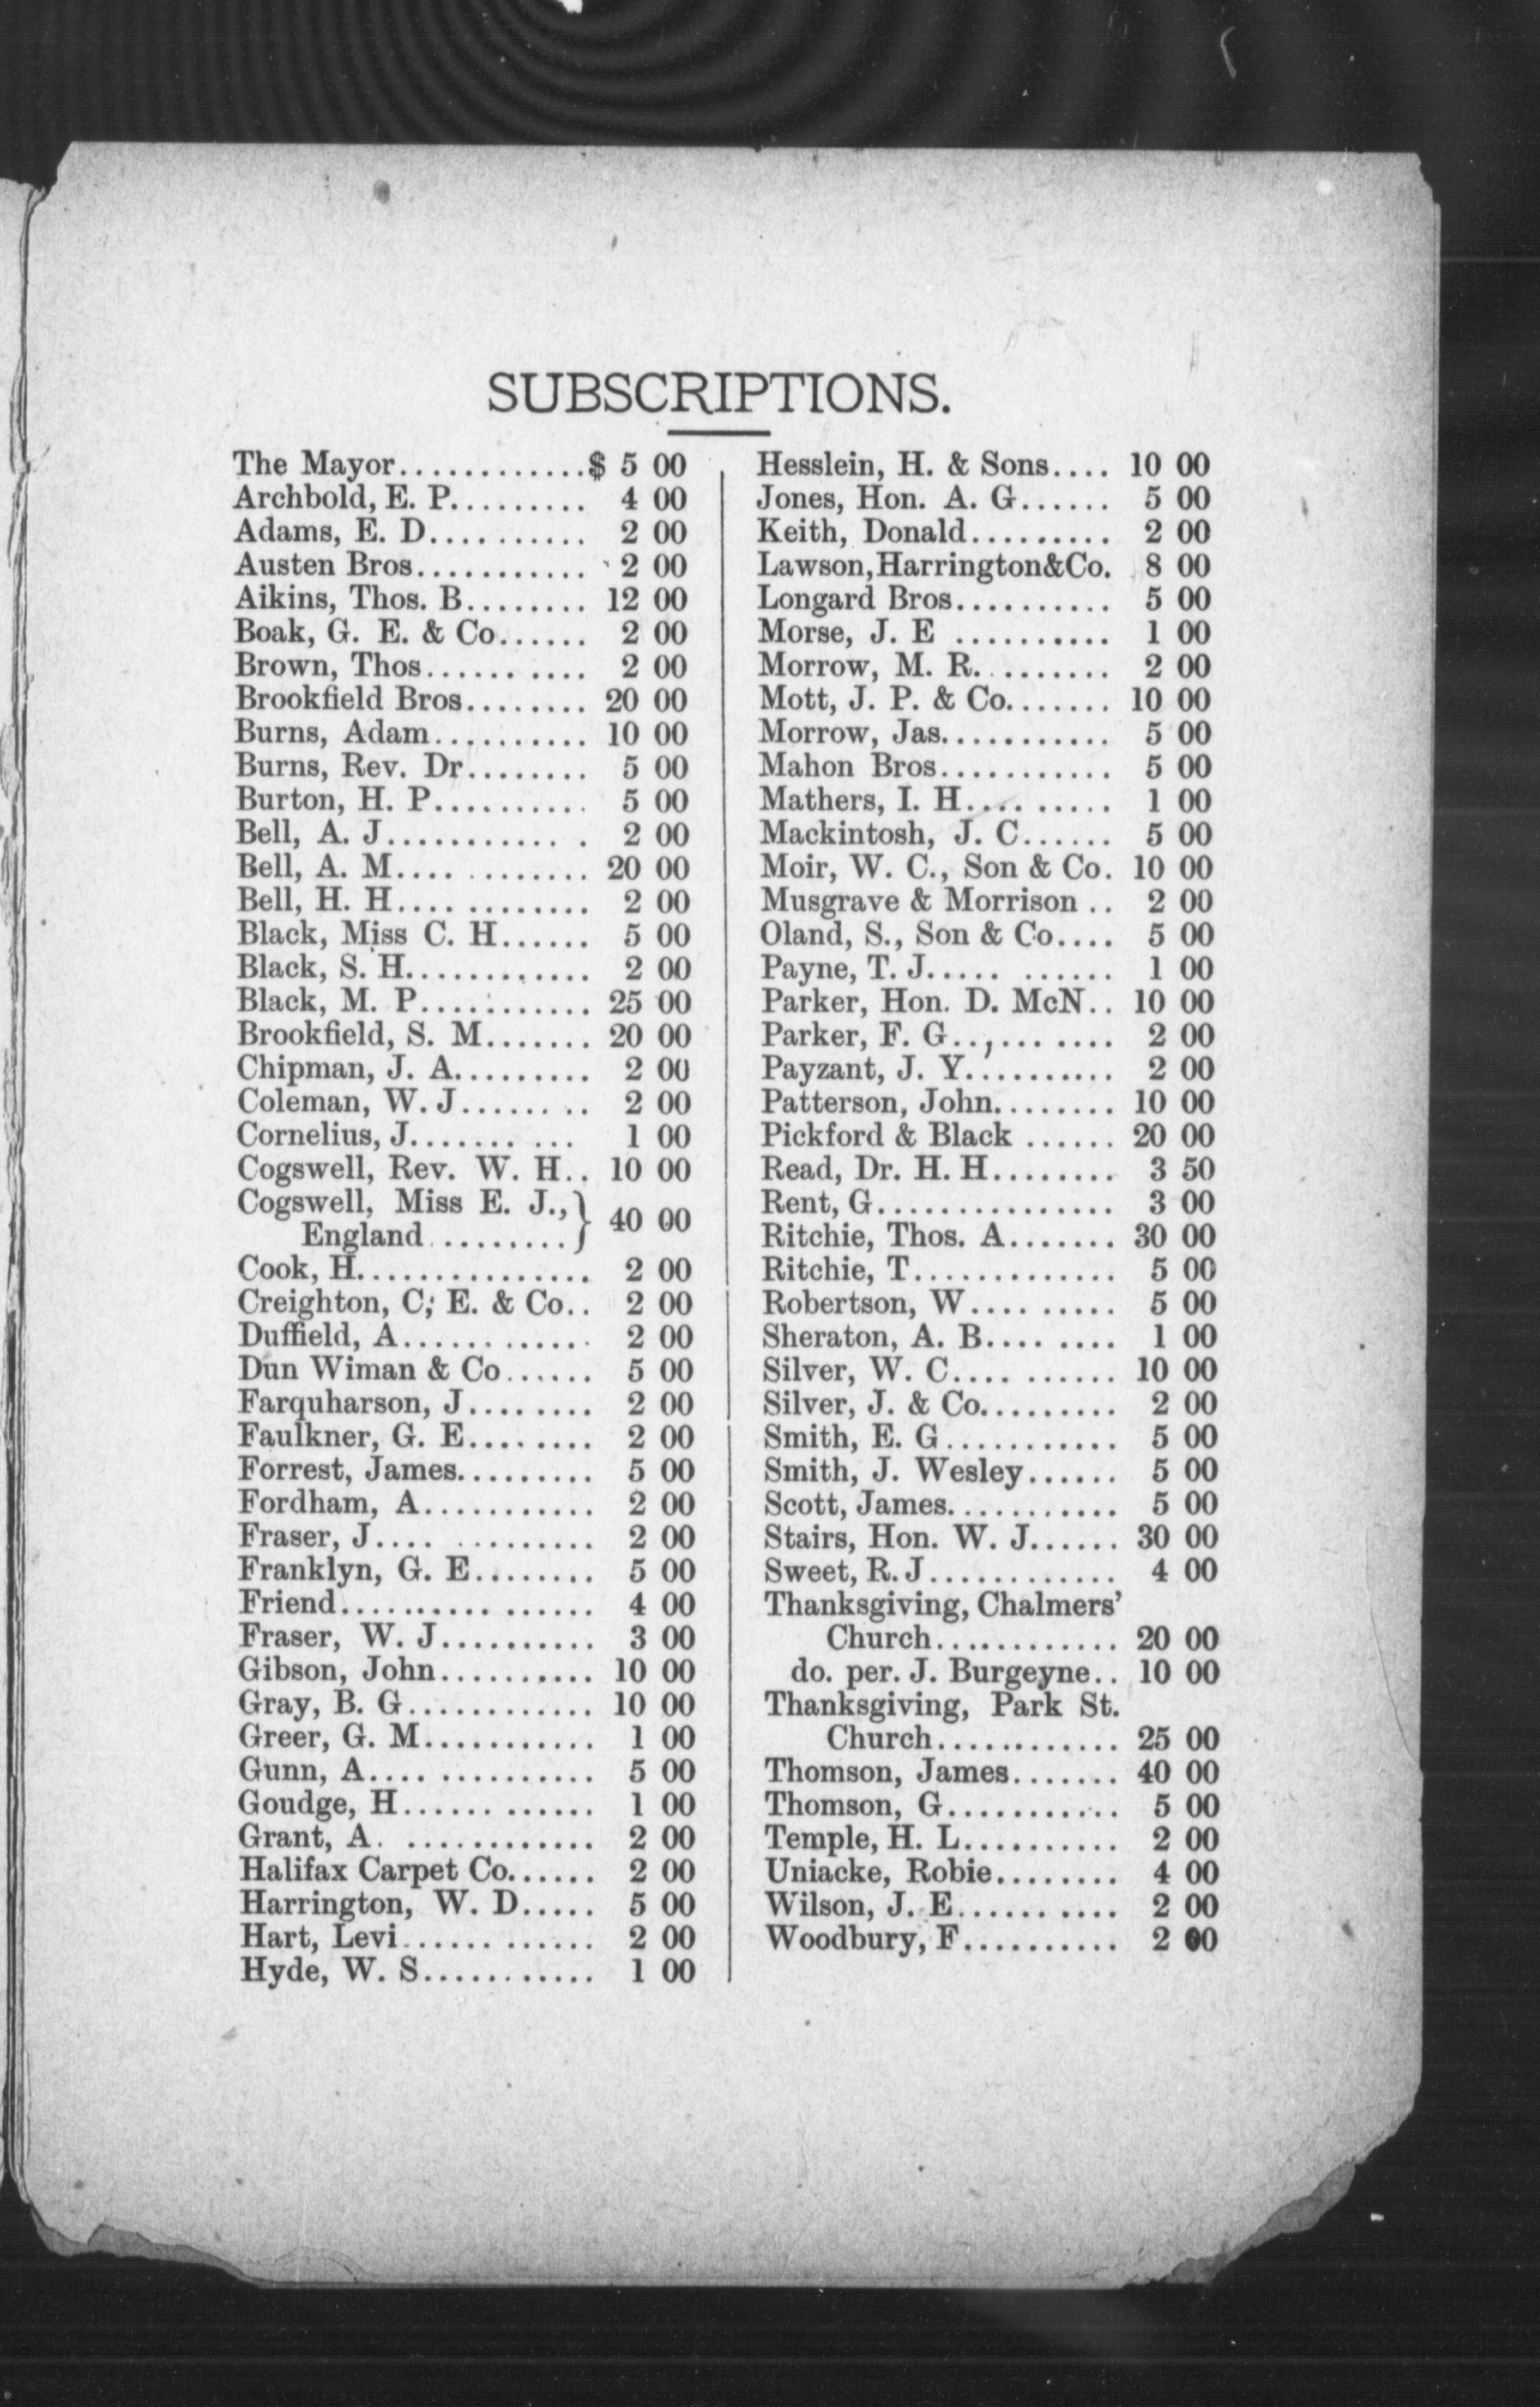 SUBSCRIPTIONS.
The Mayor.............$ 5 00
Archbold, E. P......... 4 00
Adams, E. D.......... 2 00
Austen Bros........... 2 00
Aikins, Thos. B........ 12 00
Boak, G. E. & Co...... 2 00
Brown, Thos...... .... 2 00
Brookfield Bros........ 20 00
Burns, Adam.......... 10 00
Burns, Rev. Dr........ 5 00
Burton, H. P.......... 5 00
Bell, A. J............ . 2 00
Bell, A. M.... ........ 20 00
Bell, H. H.... ........ 2 00
Black, Miss C. H...... 5 00
Black, S. H............ 2 00
Black, M. P........... 25 00
Brookfield, S. M....... 20 00
Chipman, J. A......... 2 00
Coleman, W. J...... .. 2 00
Cornelius, J....... ... 1 00
Cogswell, Rev. W. H.. 10 00
Cogswell, Miss E. J.,}
England.........} 40 00
Cook, H............... 2 00
Creighton, C; E. & Co.. 2 00
Duffield, A............ 2 00
Dun Wiman & Co...... 5 00
Farquharson, J........ 2 00
Faulkner, G. E........ 2 00
Forrest, James......... 5 00
Fordham, A........... 2 00
Fraser, J.... ......... 2 00
Franklyn, G. E........ 5 00
Friend.......... ...... 4 00
Fraser, W. J.......... 3 00
Gibson, John.......... 10 00
Gray, B. G............ 10 00
Greer, G. M........... 1 00
Gunn, A.... .......... 5 00
Goudge, H...... ...... 1 00
Grant, A. ............ 2 00
Halifax Carpet Co...... 2 00
Harrington, W. D..... 5 00
Hart, Levi...... ...... 2 00
Hyde, W. S........... 1 00
Hesslein, H. & Sons.... 10 00
Jones, Hon. A. G...... 5 00
Keith, Donald......... 2 00
Lawson,Harrington&Co. 8 00
Longard Bros.......... 5 00
Morse, J. E .......... 1 00
Morrow, M. R......... 2 00
Mott, J. P. & Co....... 10 00
Morrow, Jas........... 5 00
Mahon Bros........... 5 00
Mathers, I. H.... ..... 1 00
Mackintosh, J. C...... 5 00
Moir, W. C., Son & Co. 10 00
Musgrave & Morrison .. 2 00
Oland, S., Son & Co.... 5 00
Payne, T. J..... ...... 1 00
Parker, Hon. D. McN.. 10 00
Parker, F. G..,... .... 2 00
Payzant, J. Y.......... 2 00
Patterson, John........ 10 00
Pickford & Black ...... 20 00
Read, Dr. H. H........ 3 50
Rent, G............... 3 00
Ritchie, Thos. A....... 30 00
Ritchie, T............. 5 00
Robertson, W.... ..... 5 00
Sheraton, A. B.... .... 1 00
Silver, W. C.... ...... 10 00
Silver, J. & Co......... 2 00
Smith, E. G........... 5 00
Smith, J. Wesley...... 5 00
Scott, James........... 5 00
Stairs, Hon. W. J...... 30 00
Sweet, R. J............ 4 00
Thanksgiving, Chalmers'
Church............ 20 00
do. per. J. Burgeyne.. 10 00
Thanksgiving, Park St.
Church............ 25 00
Thomson, James....... 40 00
Thomson, G........... 5 00
Temple, H. L.......... 2 00
Uniacke, Robie........ 4 00
Wilson, J. E...... .... 2 00
Woodbury, F.......... 2 00